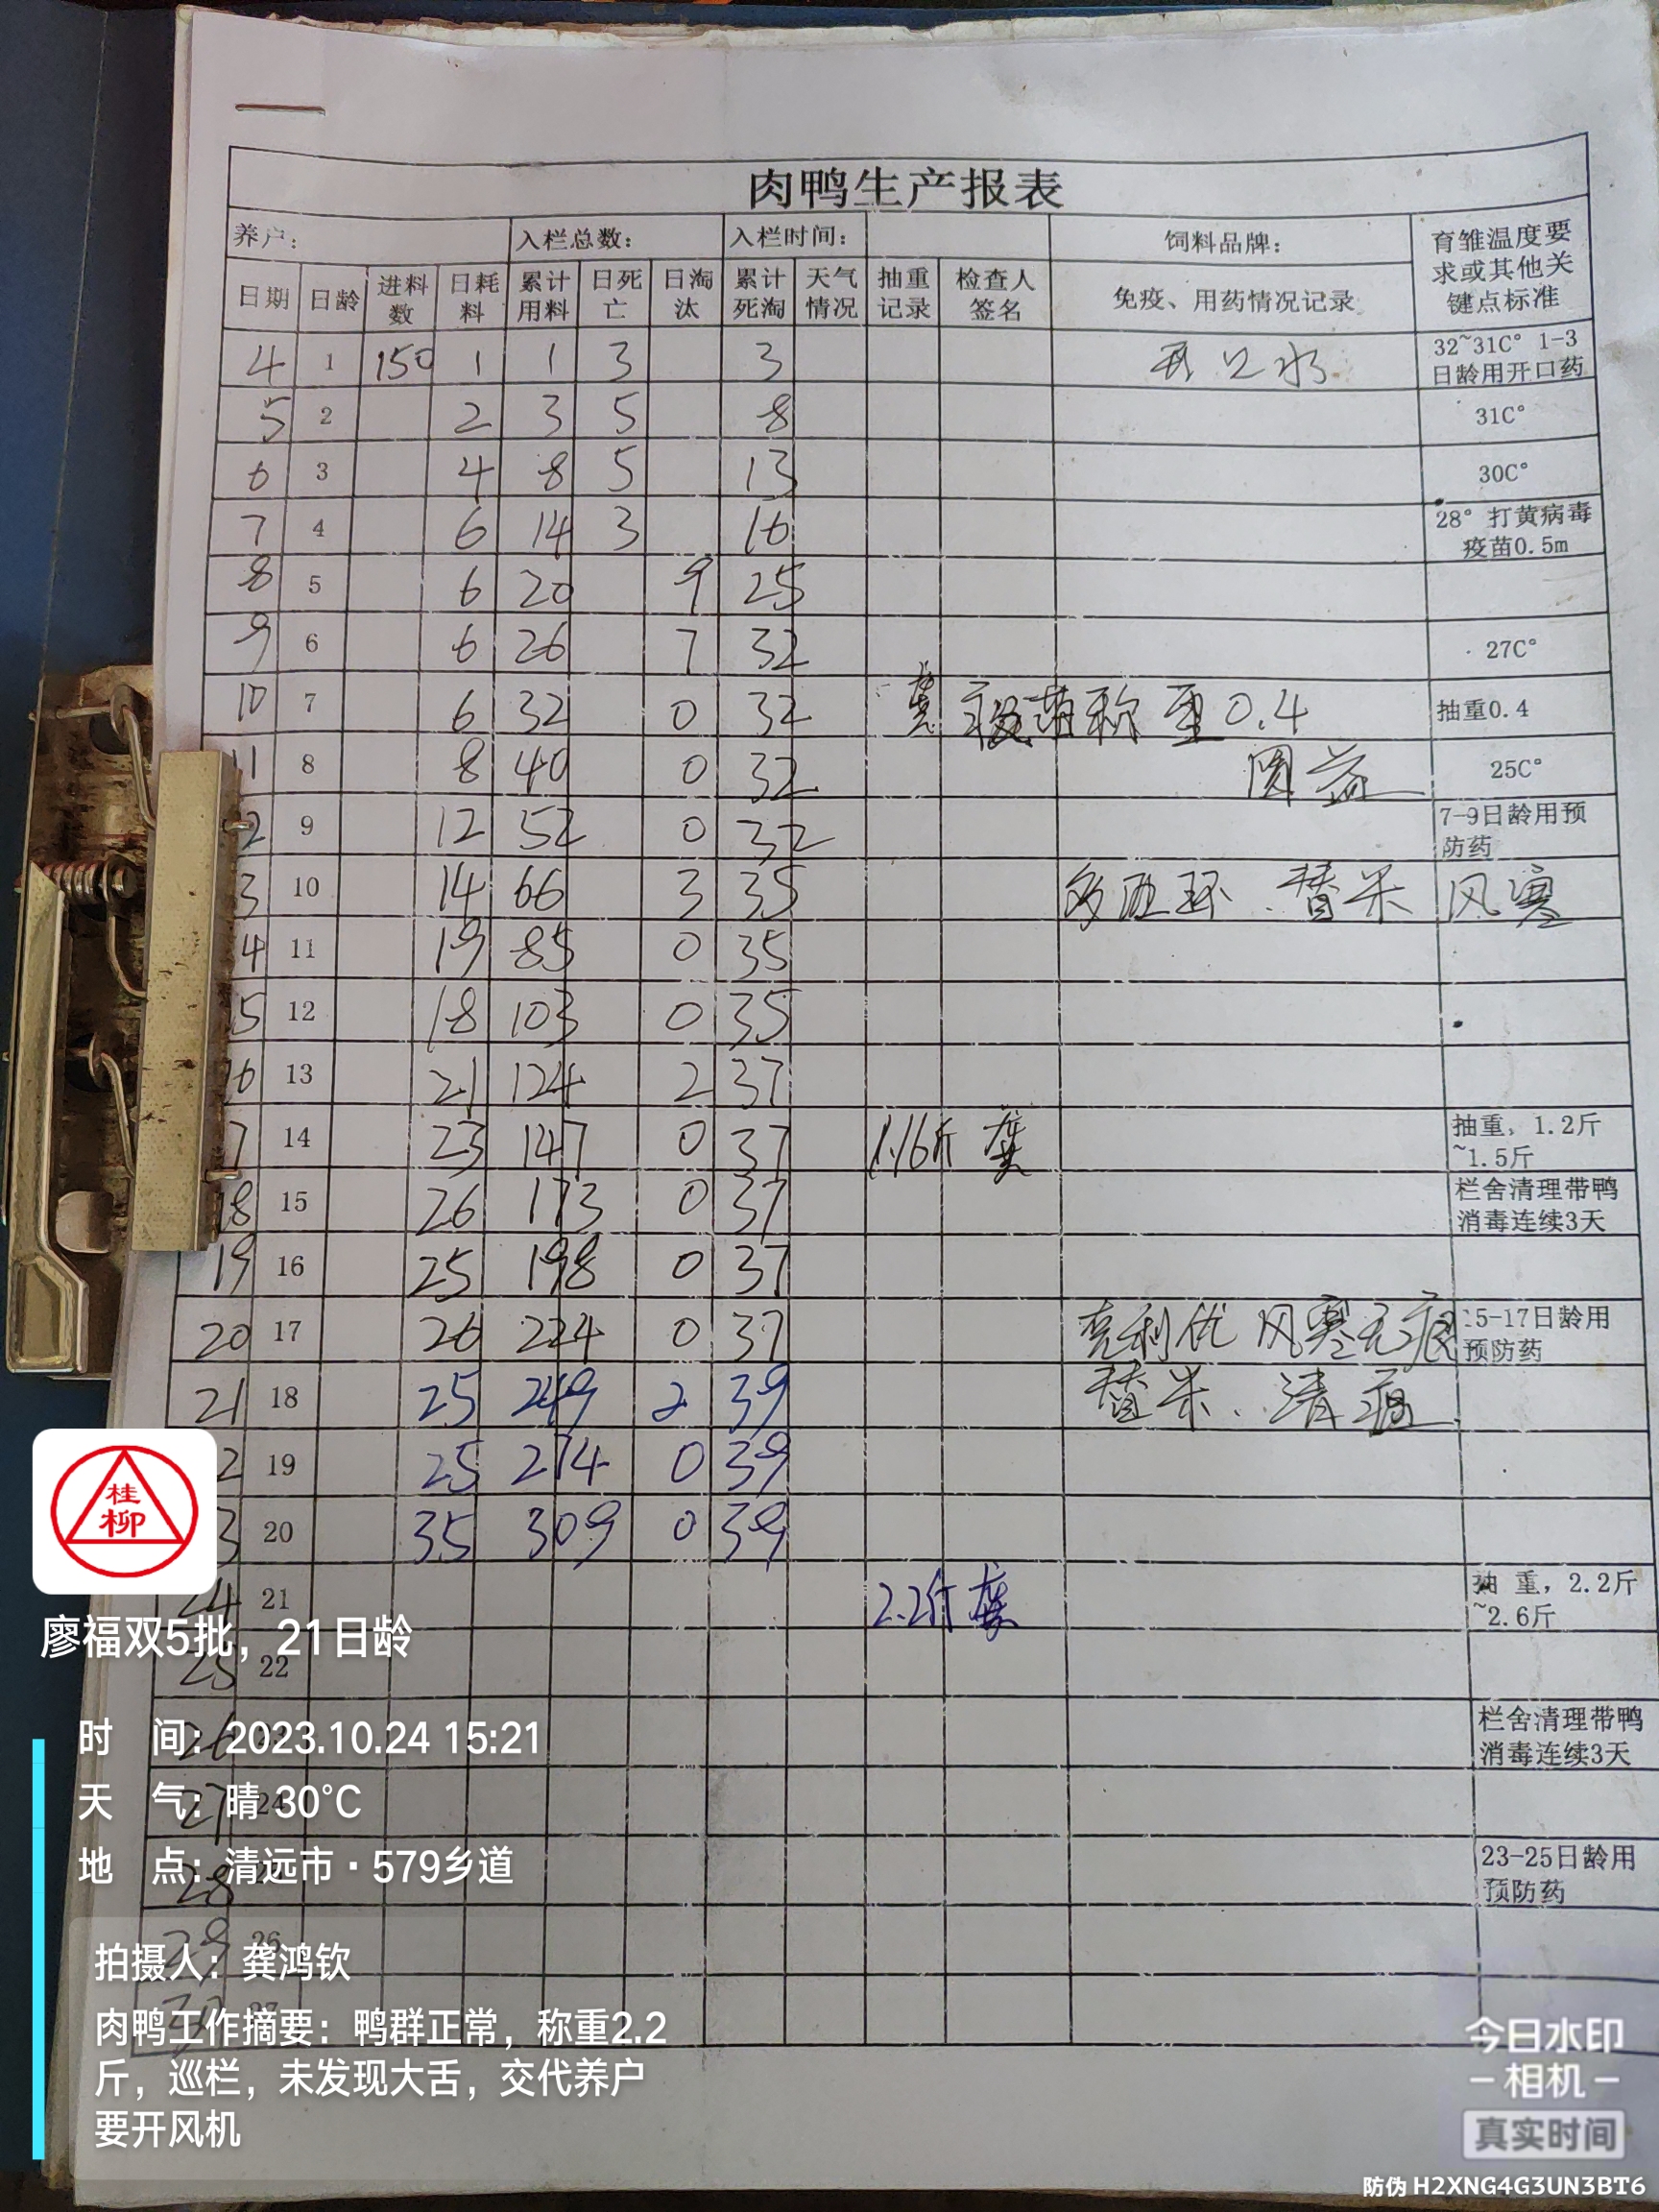 肉鸭生产报表
养户： 入栏总数： 入栏时间： 饲料品牌： 育雏温度要求或其他关键点标准
日期 日龄 进料数 日耗料 累计用料 日死亡 日淘汰 累计死淘 天气情况 抽重记录 检查人签名 免疫、用药情况记录
4 1 150 1 1 3 3 开口水 32~31C° 1-3日龄用开口药
5 2 2 3 5 8 31C°
6 3 4 8 5 13 30C°
7 4 6 14 3 16 28° 打黄病毒疫苗0.5m
8 5 6 20 9 25
9 6 6 26 7 32 27C°
10 7 6 32 0 32 龚 称重0.4 抽重0.4
1 8 8 40 0 32 25C°
2 9 12 52 0 32 7-9日龄用预防药
3 10 14 66 3 35 替米 风寒
4 11 19 85 0 35
5 12 18 103 0 35
16 13 21 124 2 37
7 14 23 147 0 37 1.16斤 龚 抽重，1.2斤~1.5斤
18 15 26 173 0 37 栏舍清理带鸭消毒连续3天
19 16 25 198 0 37
20 17 26 224 0 37 克利优 风寒无痕 15-17日龄用预防药
21 18 25 249 2 39 替米、清瘟
2 19 25 274 0 39
3 20 35 309 0 39
24 21 2.2斤 龚 抽 重，2.2斤~2.6斤
25 22
26 23 栏舍清理带鸭消毒连续3天
27 24
28 23-25日龄用预防药
29 26
30 27
桂柳
廖福双5批，21日龄
时 间：2023.10.24 15:21
天 气：晴 30°C
地 点：清远市·579乡道
拍摄人：龚鸿钦
肉鸭工作摘要：鸭群正常，称重2.2
斤，巡栏，未发现大舌，交代养户
要开风机
今日水印
-相机-
真实时间
防伪 H2XNG4G3UN3BT6